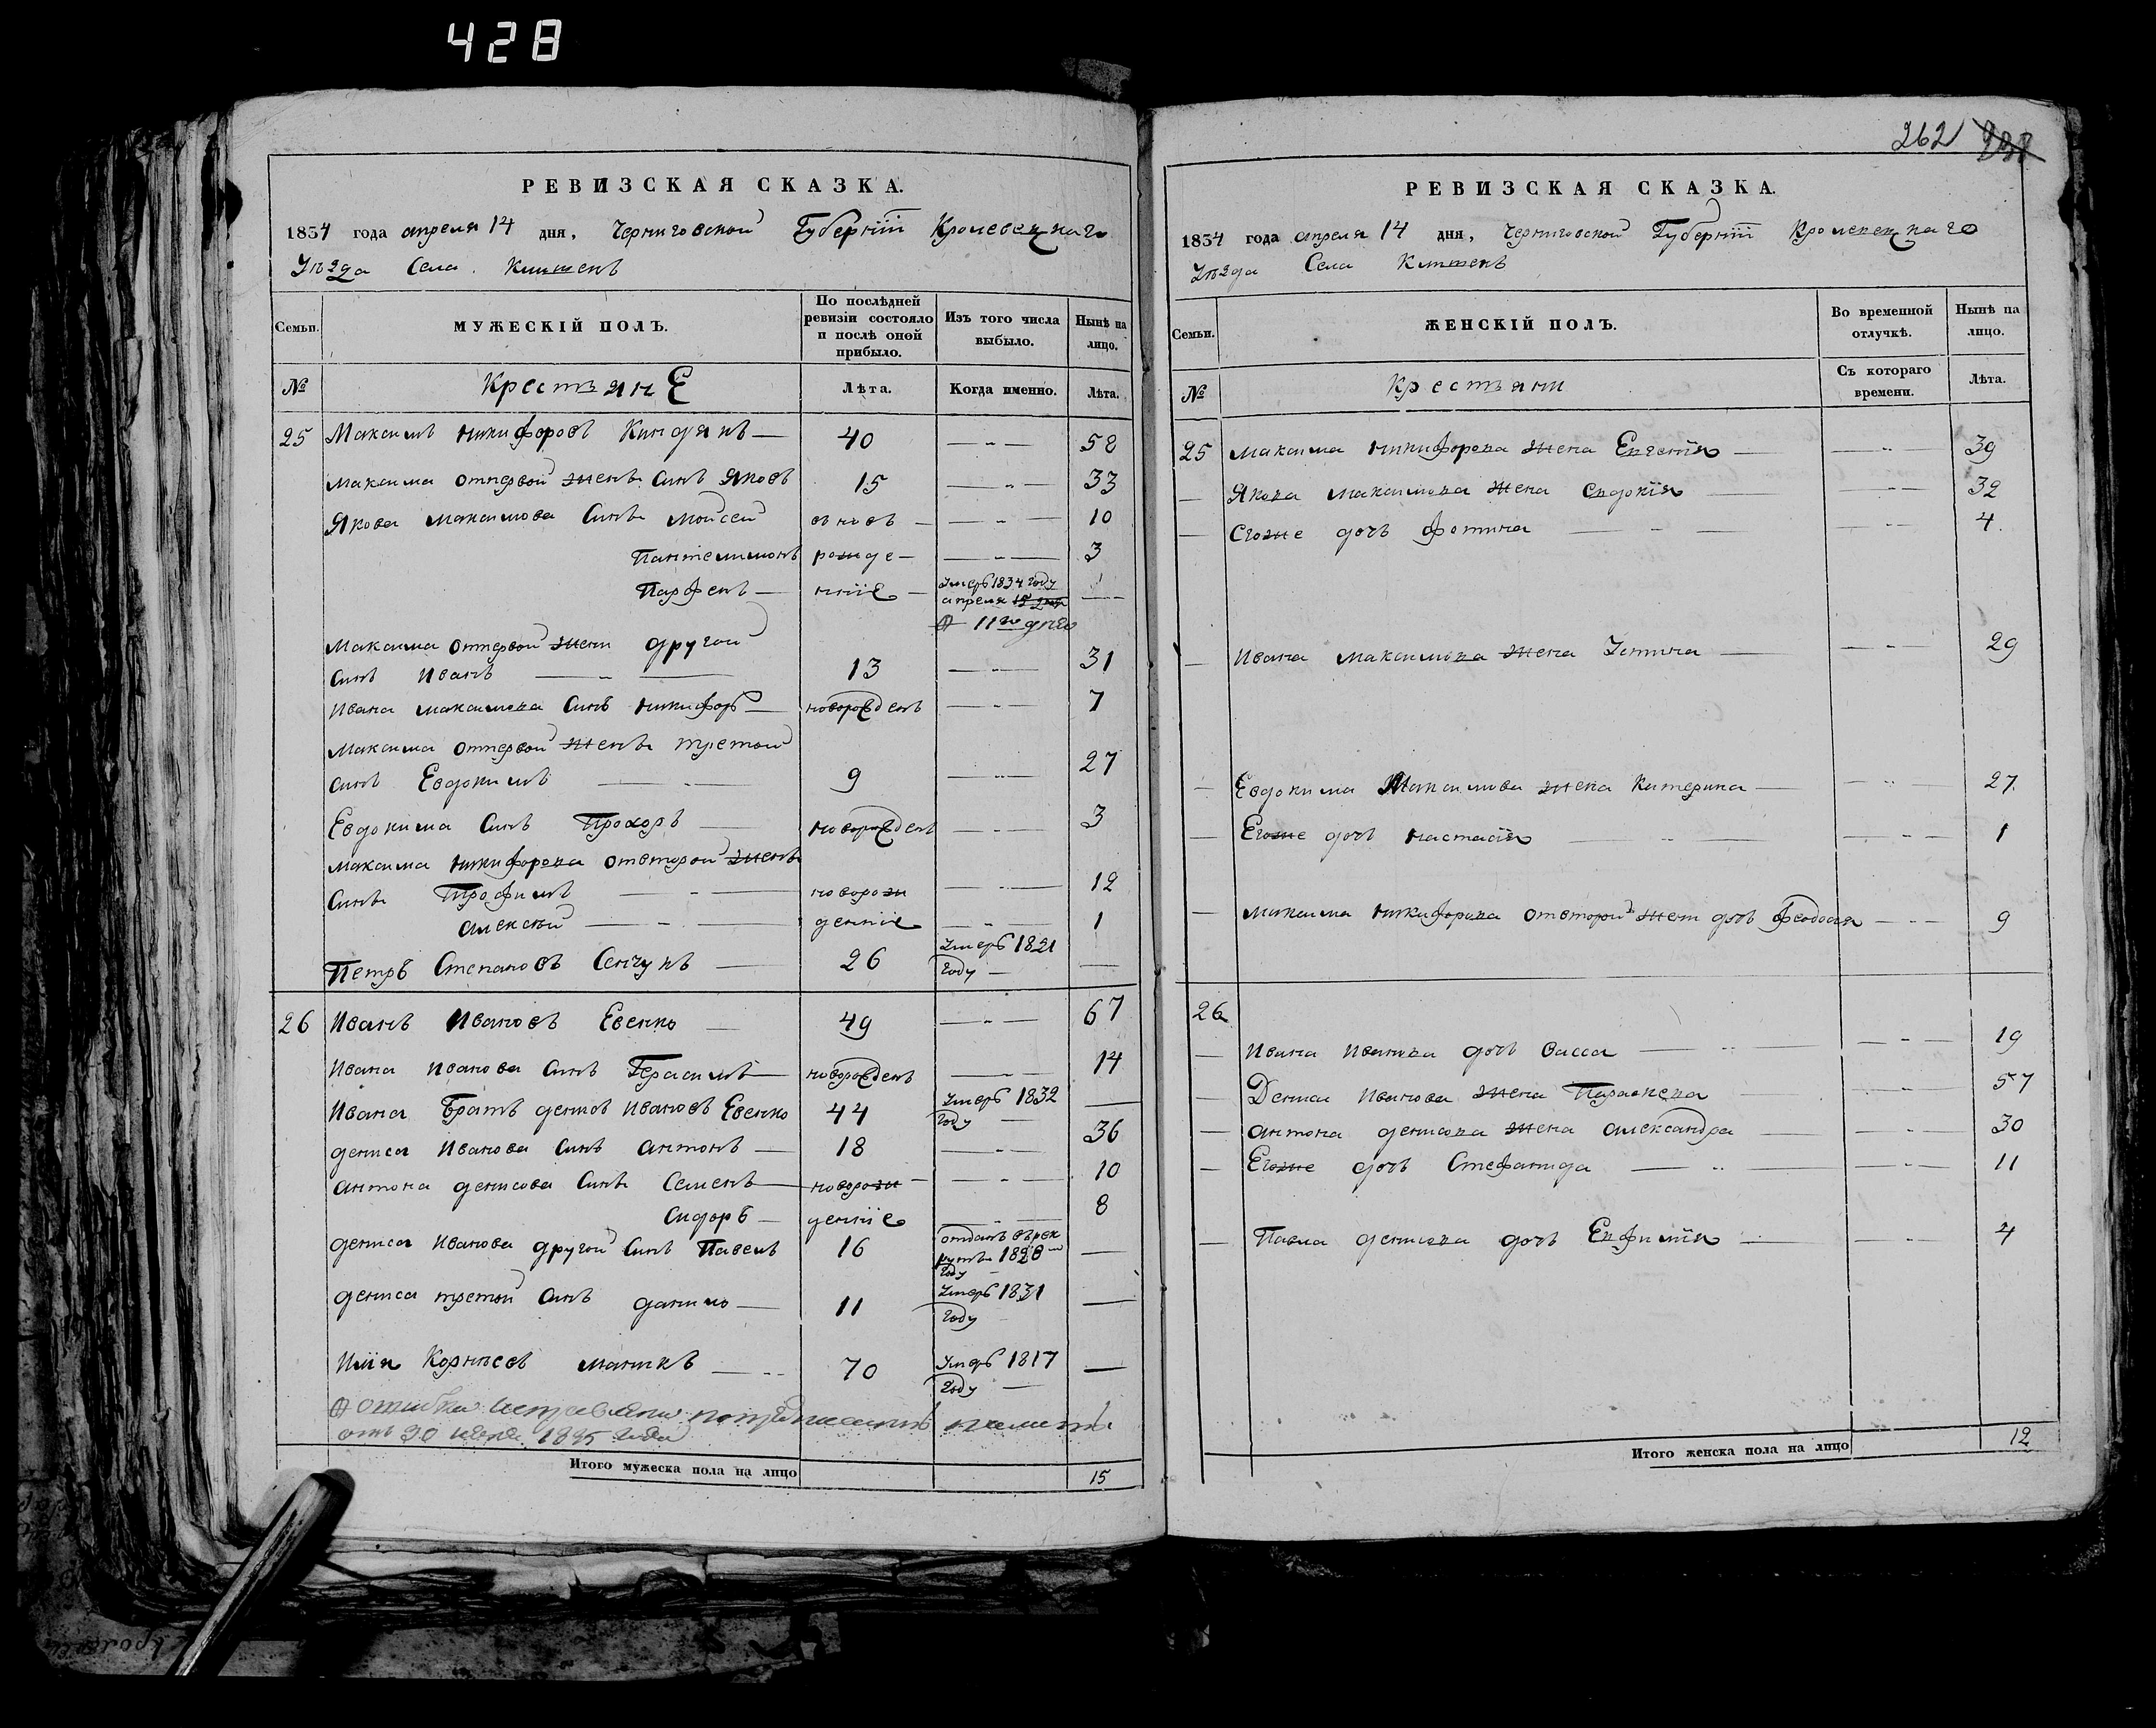 428
РЕВИЗСКАЯ СКАЗКА.
1834 года апреля 14 дня, Черниговской Губерніи Кролевецкаго
Уѣзда Села
Семьи. МУЖЕСКІЙ ПОЛЪ. По послѣдней ревизіи состояло и послѣ оной прибыло. Изъ того числа выбыло. Нынѣ на лицо.
№ Крестьяне Лѣта. Когда именно. Лѣта.
25 Максимъ Никифоровъ Киндякъ — 40 — „ — 58
Максима отпервой жены Синъ Яковъ 15 — „ — 33
Якова Максимова Синъ Мойсей вновь — — „ — 10
Пантелимонъ рожде — — „ — 3
Парфенъ — нніе — Умеръ 1834 году
апреля —
11го дня
Максима отпервой жени другой
Синъ Иванъ — „ — 13 — „ — 31
Ивана Максимова Синъ Никифоръ — новорожденъ — „ — 7
Максима отпервой жены третой
Синъ Евдокимъ — „ — 9 — „ — 27
Евдокима Синъ Прохоръ — новорожденъ — „ — 3
Максима Никифорова отвторой жены
Синъ Трофимъ — „ — новорож — „ — 12
Алексей — „ — денніе — „ — 1
Петръ Степановъ Сенчукъ — 26 Умеръ 1821
году — —
26 Иванъ Ивановъ Евенко — 49 — „ — 67
Ивана Иванова Синъ Герасимъ — новорожденъ — „ — 14
Ивана Братъ Денисъ Ивановъ Евенко 44 Умеръ 1832
году — —
Дениса Иванова Синъ Антонъ — 18 — „ — 36
Антона Денисова Синъ Семенъ — новорож — — „ — 10
Сидоръ — денніе — „ — 8
Дениса Иванова другой Синъ Павелъ 16 отданъ врек
руты 1828
году —
Дениса третой Синъ Данило — 11 Умеръ 1831
году —
Корнѣевъ 70 Умеръ 1817
году — —
ошибка исправлена
отъ 30 1835 года
Итого мужеска пола на лицо 15
262
РЕВИЗСКАЯ СКАЗКА.
1834 года апреля 14 дня, Черниговской Губерніи Кролевецкаго
Уѣзда Села
Семьи. ЖЕНСКІЙ ПОЛЪ. Во временной отлучкѣ. Нынѣ на лицо.
№ Крестьяни Съ котораго времени. Лѣта.
25 Максима Никифорова жена Евгенія — — „ — 39
— Якова Максимова жена Евдокія — — „ — 32
— Егоже дочъ Фотина — „ — — „ — 4
— Ивана Максимова жена Устина — — „ — 29
— Евдокима Максимова жена Катерина — — „ — 27
— Егоже дочъ Настасія — „ — — „ — 1
— Максима Никифорова отвторой жени дочъ Феодосия — „ — 9
26
— Ивана Иванова дочъ Васса — „ — — „ — 19
— Дениса Иванова жена Параскева — — „ — 57
— Антона Денисова жена Александра — — „ — 30
— Егоже дочъ Стефанида — „ — — „ — 11
— Павла Денисова дочъ Евфимія — — „ — 4
Итого женска пола на лицо 12